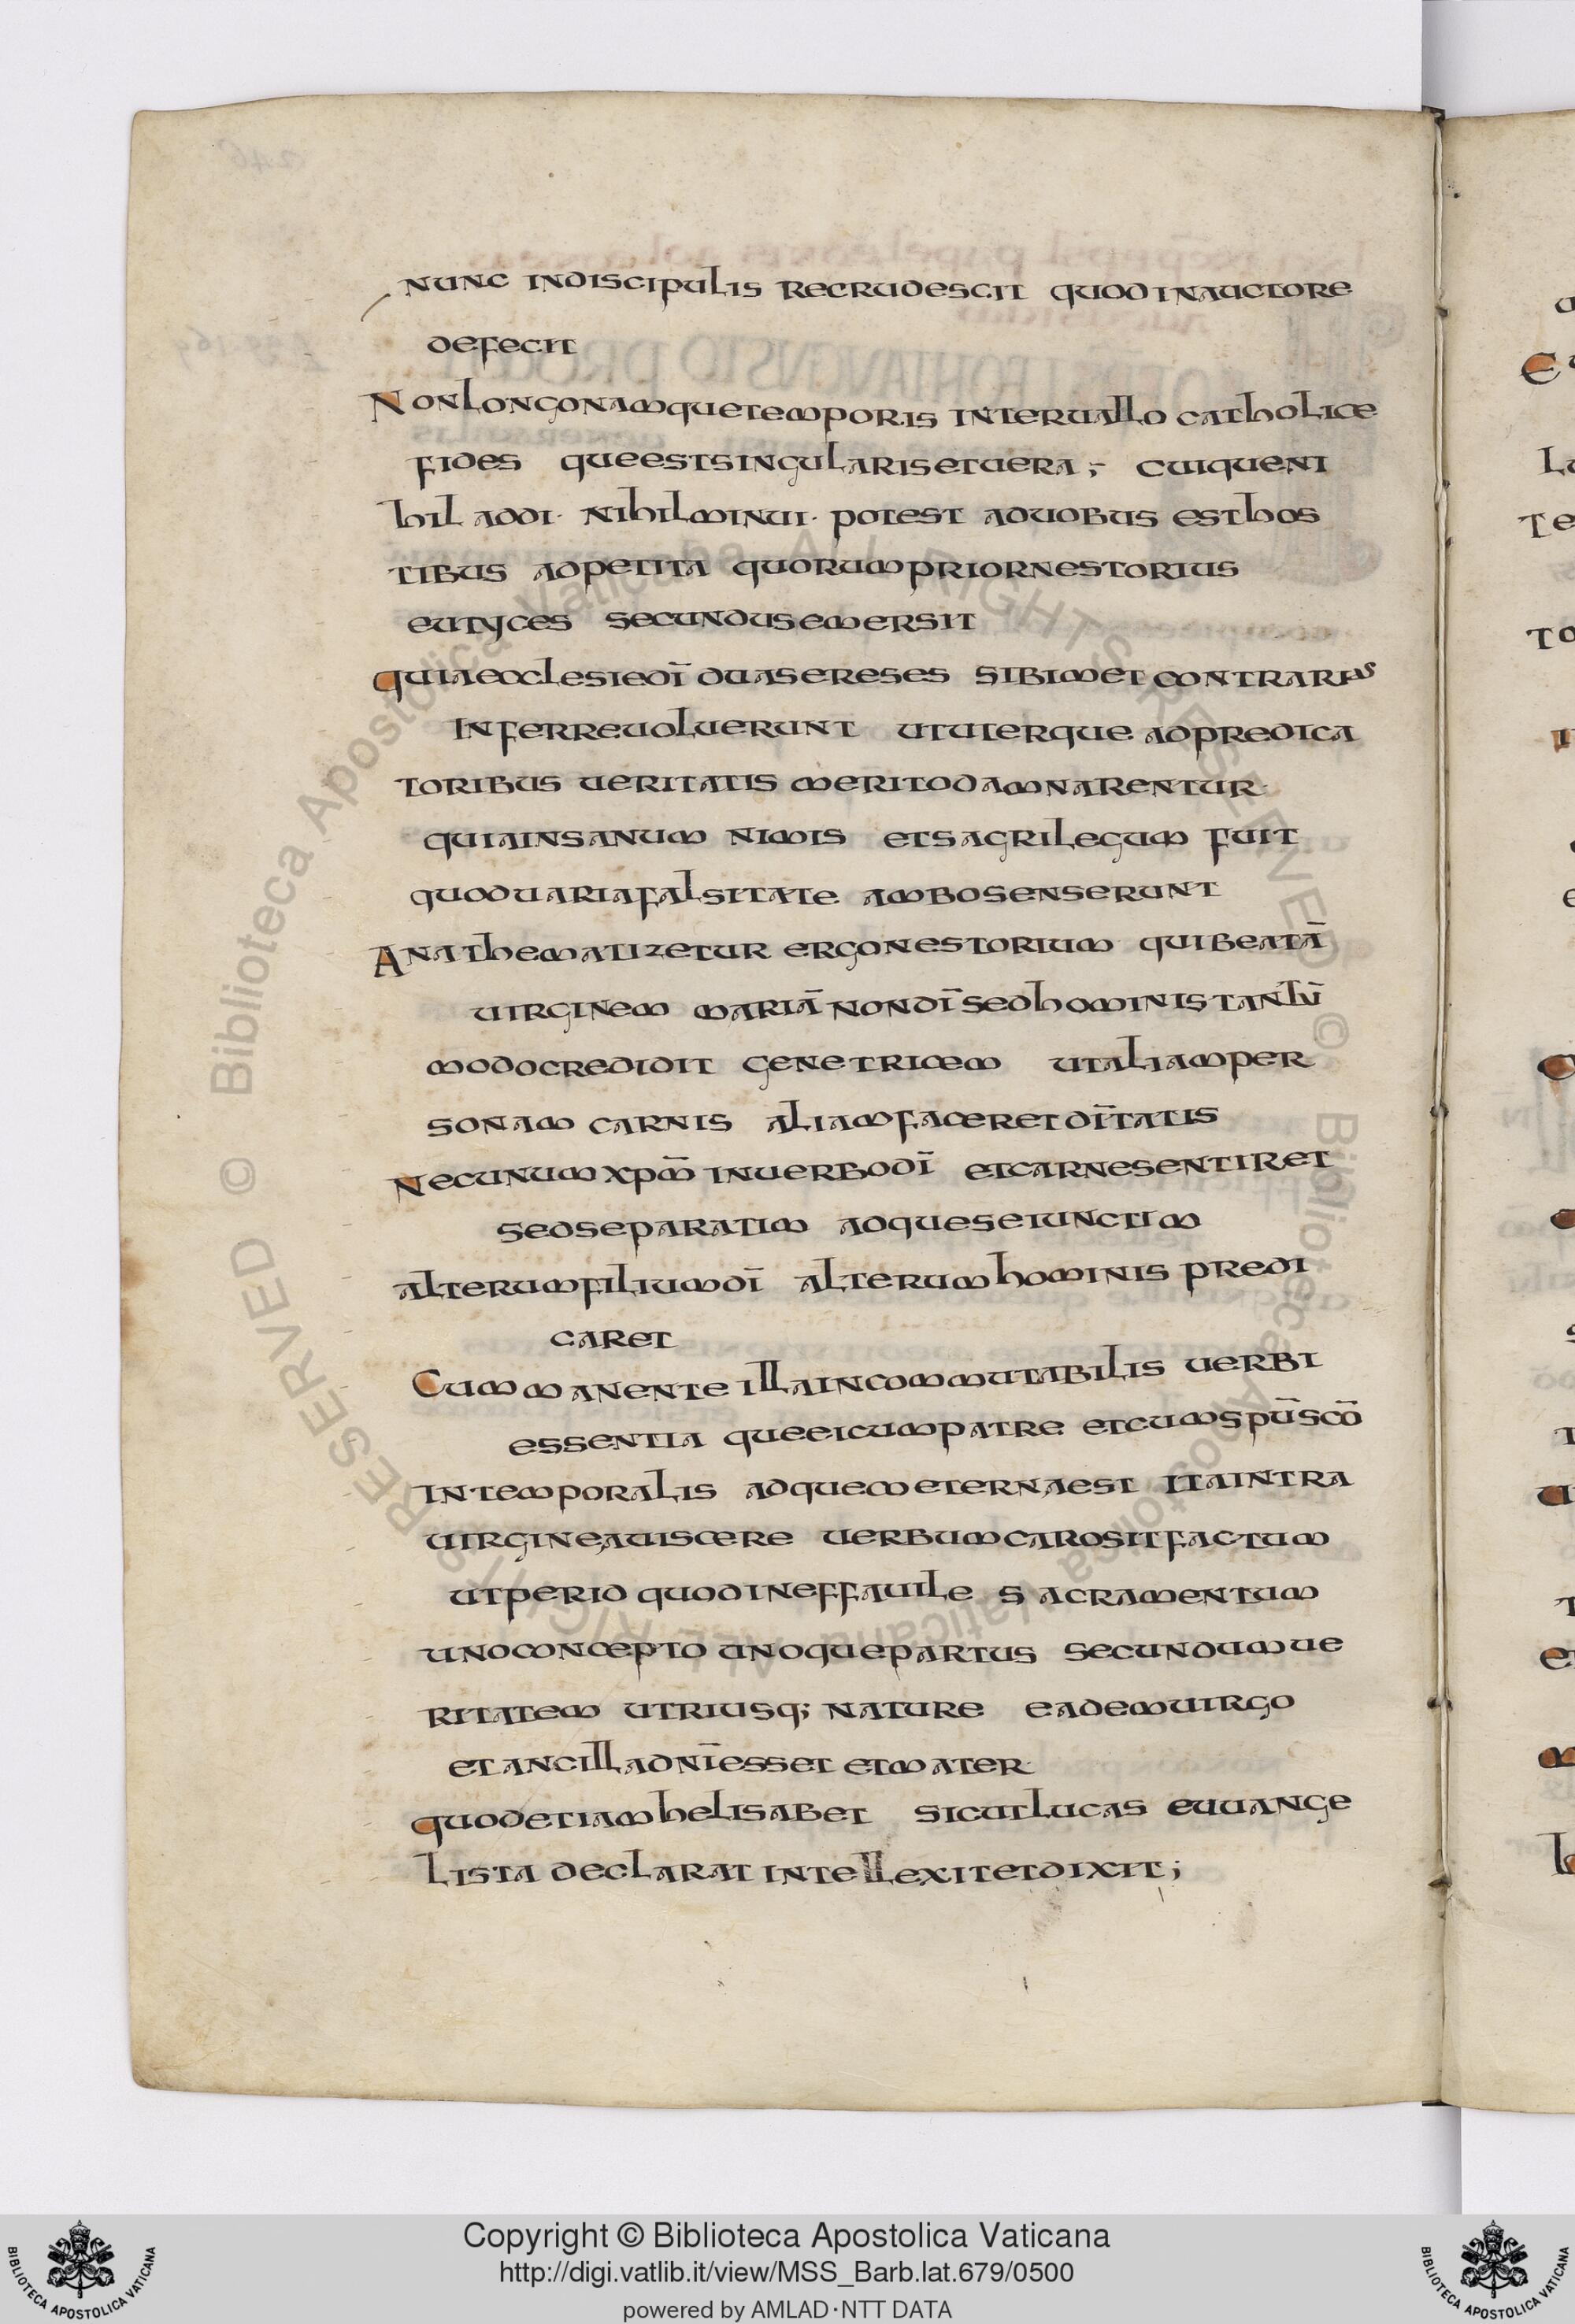 nunc indiscipulis recrudescit quodinauctore
defecit
Nonlongonamquetemporis interuallo catholice
fides queestsingularisetuera ;- cuiqueni
hil addi · nihilminui · potest aduobus esthos
tibus adpetita quorumpriornestorius
eutyces secundusemersit
quiaecclesiedī duasereses sibimet contrarias
Inferreuoluerunt ututerque adpredica
toribus ueritatis meritodamnarentur·
quiainsanum nimis etsagrilegum fuit
quoduariafalsitate ambosenserunt
Anathematizetur ergonestorium quibeatā
uirginem mariā nondīsedhoministantū
modocredidit genetricem utaliamper
sonam carnis aliamfaceretdītatis
Necunumxpm̄ inuerbodī etcarnesentiret
sedseparatim adqueseiunctim
alterumfiliumdī alterumhominis predi
caret
Cummanenteillaincommutabilis uerbi
essentia queeicumpatre etcumspūscō
intemporalis adquemeternaest itaintra
uirgineauiscere uerbumcarositfactum
utperid quodineffauile sacramentum
unoconcepto unoquepartus secundumue
ritatem utriusq; nature eademuirgo
etancilladnīesset etmater·
quodetiamhelisabet sicutlucas euuange
lista declarat intellexitetdixit;
246
Copyright © Biblioteca Apostolica Vaticana
http://digi.vatlib.it/view/MSS_Barb.lat.679/0500
powered by AMLAD·NTT DATA